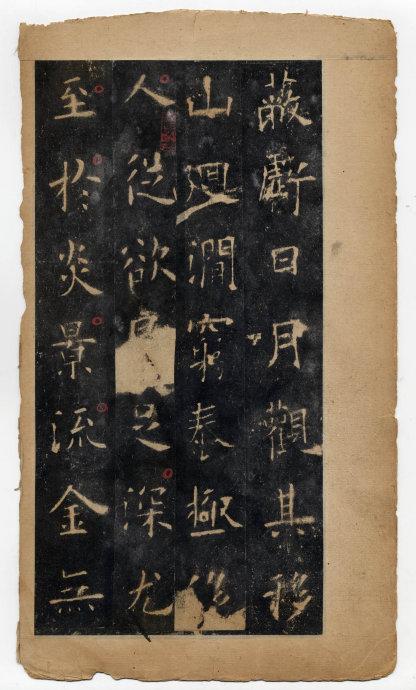 蔽虧日月觀其移
山迴澗窮泰極侈
人從欲足深尤
至於炎景流金無